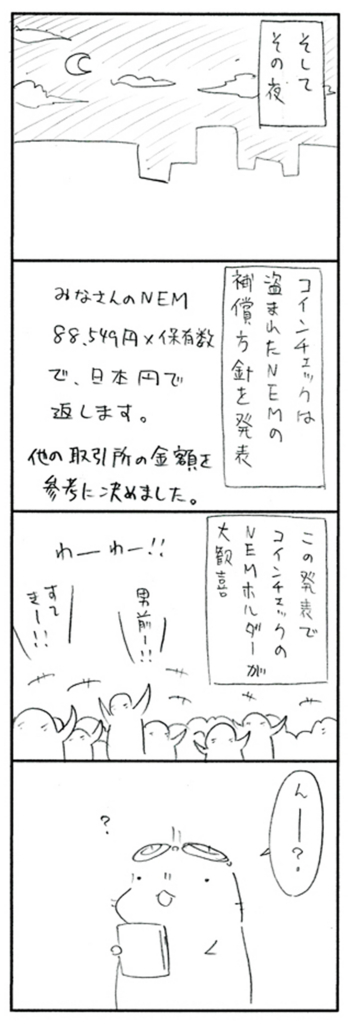 そして
その夜
コインチェックは
盗まれたNEMの
補償方針を発表
みなさんのNEM
88.549円×保有数
で、日本円で
返します。
他の取引所の金額を
参考に決めました。
この発表で
コインチェックの
NEMホルダーが
大歓喜
わーわー!!
男前ー!!
すてきー!!
んー?
?